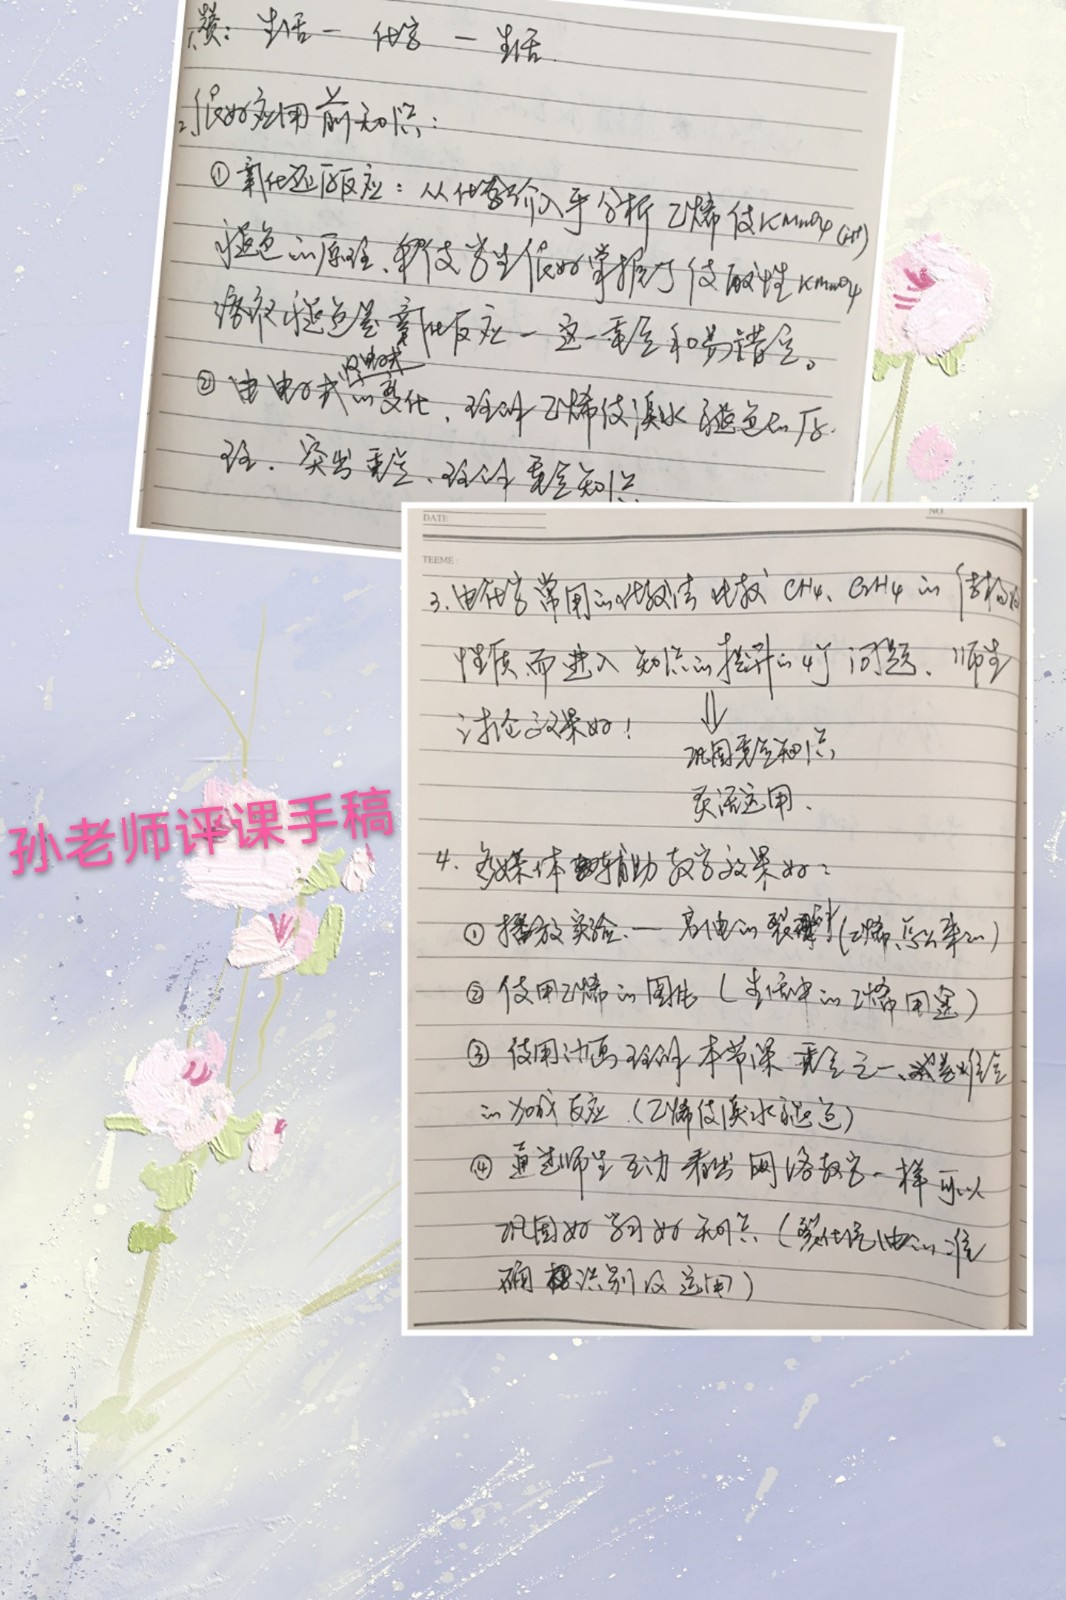 赞：生活一化学一生活.
2.很好应用前知识：
① 氧化还原反应：从化合价入手分析乙烯使KMnO4(H+)
褪色的原理、使学生很好掌握了使酸性KMnO4
溶液褪色是氧化反应一这一重点和易错点。
② 由电子式的变化，理解乙烯使溴水褪色的原
理．突出重点、理解重点知识
DATE
NO.
TEEME:
3.由化学常用的比较法比较 CH4、C2H4的结构和
性质而进入知识的提升的4个问题、师生
讨论效果好！
⇓
巩固重点知识
灵活运用．
孙老师评课手稿
4. 多媒体辅助教学效果好：
① 播放实验．一 石油的裂解(乙烯怎么来的)
② 使用乙烯的图片（生活中的乙烯用途）
③ 使用动画理解本节课重点之一、难点
的加成反应（乙烯使溴水褪色）
④ 通过师生互动看出网络教学一样可以
巩固好学习好知识（裂化汽油的准
确识别及运用）